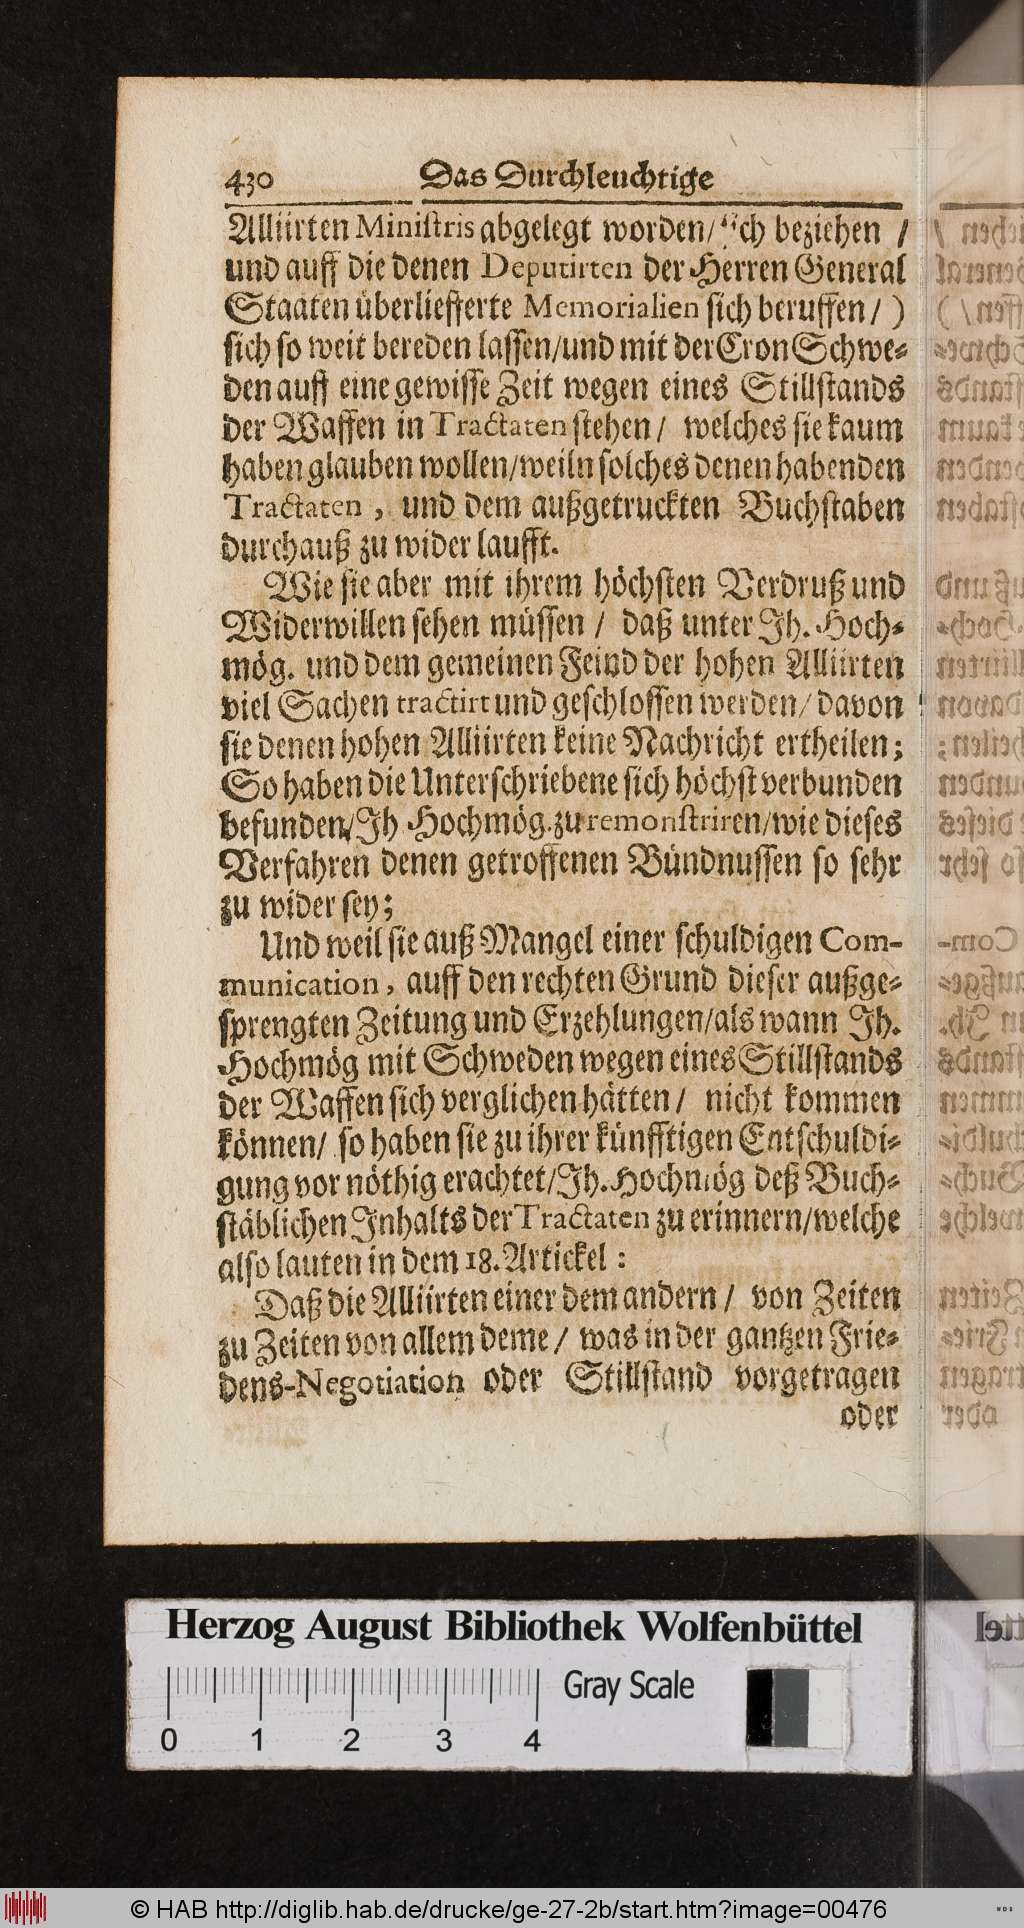 430 Das Durchleuchtige
Alliirten Ministris abgelegt worden/ sich beziehen /
und auff die denen Deputirten der Herren General
Staaten überliefferte Memorialien sich beruffen / )
sich so weit bereden lassen/und mit der Cron Schwe-
den auff eine gewisse Zeit wegen eines Stillstands
der Waffen in Tractaten stehen / welches sie kaum
haben glauben wollen/weiln solches denen habenden
Tractaten , und dem außgetruckten Buchstaben
durchauß zu wider laufft.
Wie sie aber mit ihrem höchsten Verdruß und
Widerwillen sehen müssen / daß unter Ih. Hoch-
mög. und dem gemeinen Feind der hohen Alliirten
viel Sachen tractirt und geschlossen werden/ davon
sie denen hohen Alliirten keine Nachricht ertheilen;
So haben die Unterschriebene sich höchst verbunden
befunden/Ih Hochmög. zu remonstriren/wie dieses
Verfahren denen getroffenen Bündnussen so sehr
zu wider sey;
Und weil sie auß Mangel einer schuldigen Com-
munication, auff den rechten Grund dieser außge-
sprengten Zeitung und Erzehlungen/als wann Ih.
Hochmög mit Schweden wegen eines Stillstands
der Waffen sich verglichen hätten / nicht kommen
können/ so haben sie zu ihrer künfftigen Entschuldi-
gung vor nöthig erachtet/Ih. Hochmög deß Buch-
stäblichen Inhalts der Tractaten zu erinnern/welche
also lauten in dem 18. Artickel :
Daß die Alliirten einer dem andern / von Zeiten
zu Zeiten von allem deme / was in der gantzen Frie-
dens-Negotiation oder Stillstand vorgetragen
oder
Herzog August Bibliothek Wolfenbüttel
Gray Scale
0 1 2 3 4
© HAB http://diglib.hab.de/drucke/ge-27-2b/start.htm?image=00476